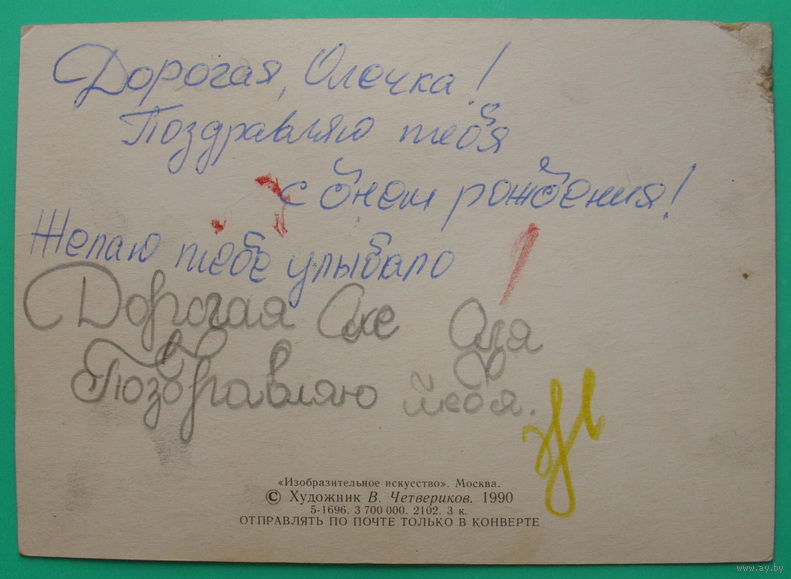 Дорогая, Олечка!
Поздравляю тебя
с днем рождения!
Желаю тебе улыбало
Дорогая Оля
Поздравляю тебя.
«Изобразительное искусство». Москва.
© Художник В. Четвериков. 1990
5-1696. 3 700 000. 2102. 3 к.
ОТПРАВЛЯТЬ ПО ПОЧТЕ ТОЛЬКО В КОНВЕРТЕ
www.ay.by